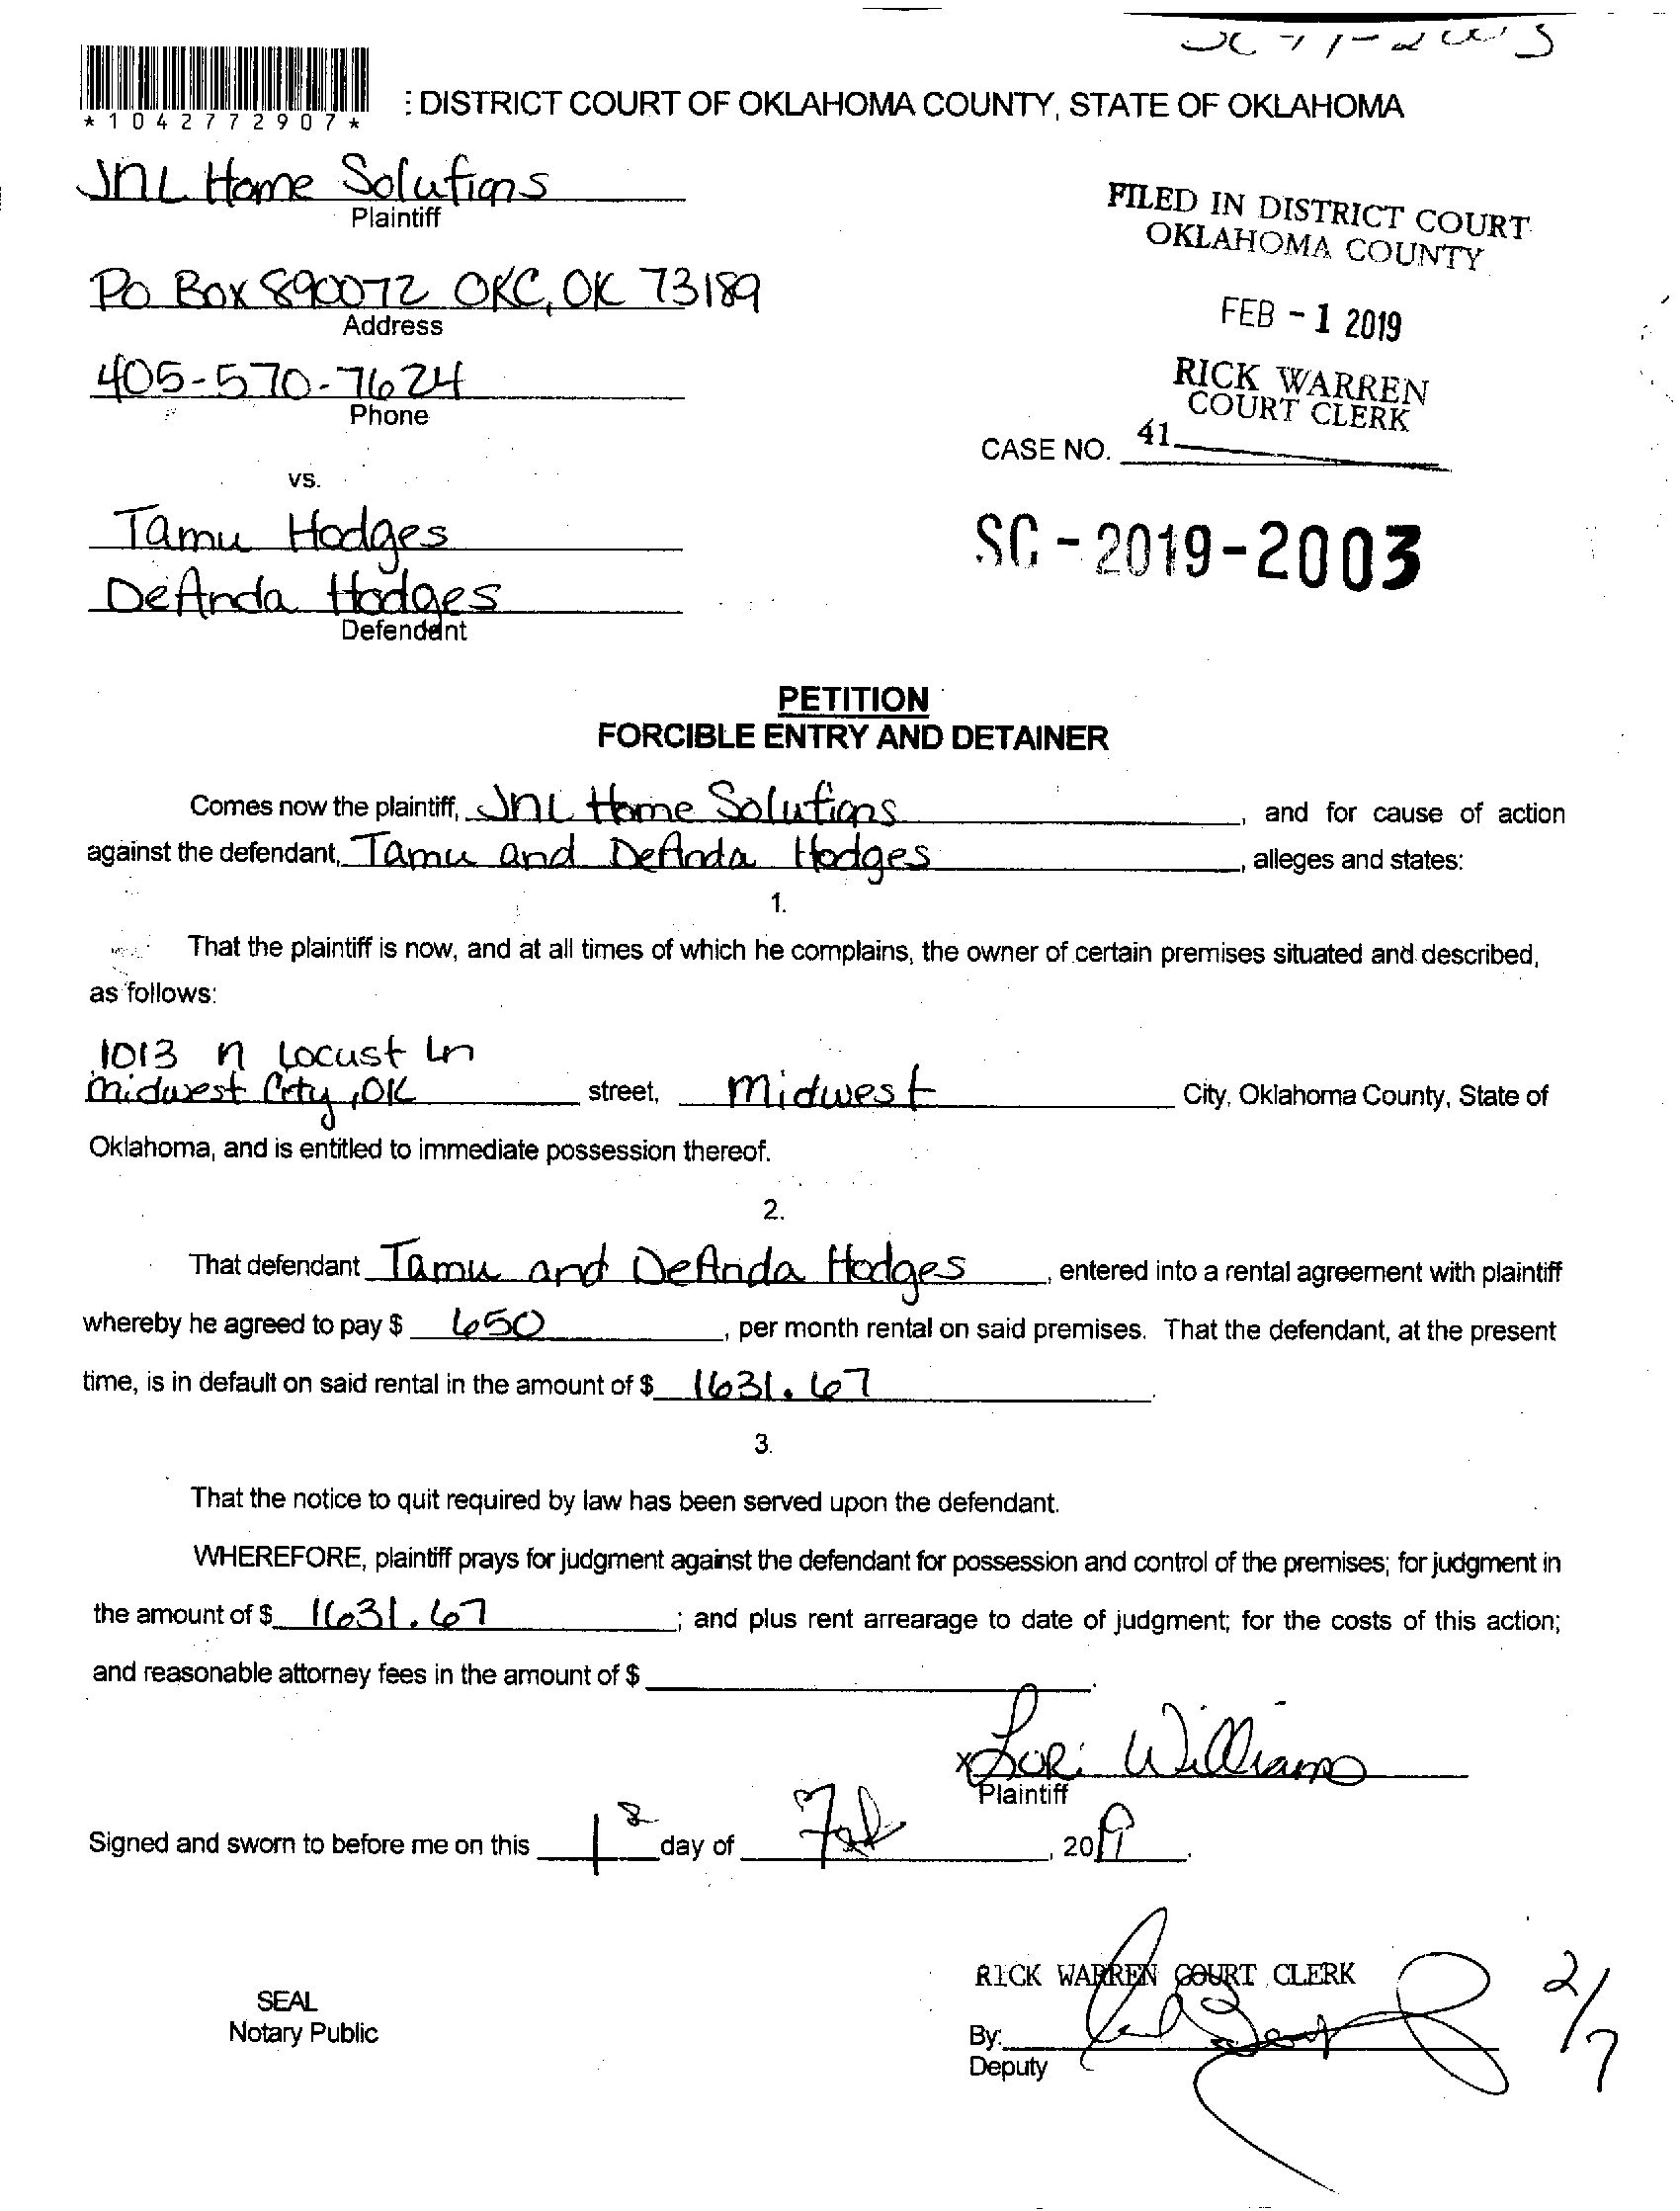 *1042772907*
: DISTRICT COURT OF OKLAHOMA COUNTY, STATE OF OKLAHOMA
JNL Home Solutions
Plaintiff
PO Box 890072 OKC, OK 73189
Address
405-570-7624
Phone
vs.
Tamu Hodges
DeAnda Hodges
Defendant
FILED IN DISTRICT COURT
OKLAHOMA COUNTY
FEB - 1 2019
RICK WARREN
COURT CLERK
CASE NO. 41
SC - 2019-2003
PETITION
FORCIBLE ENTRY AND DETAINER
Comes now the plaintiff, JNL Home Solutions, and for cause of action
against the defendant, Tamu and DeAnda Hodges, alleges and states:
1.
That the plaintiff is now, and at all times of which he complains, the owner of certain premises situated and described,
as follows:
1013 N Locust Ln
Midwest City, OK street, Midwest City, Oklahoma County, State of
Oklahoma, and is entitled to immediate possession thereof.
2.
That defendant Tamu and DeAnda Hodges, entered into a rental agreement with plaintiff
whereby he agreed to pay $ 650, per month rental on said premises. That the defendant, at the present
time, is in default on said rental in the amount of $ 1631.67.
3.
That the notice to quit required by law has been served upon the defendant.
WHEREFORE, plaintiff prays for judgment against the defendant for possession and control of the premises; for judgment in
the amount of $ 1631.67; and plus rent arrearage to date of judgment; for the costs of this action;
and reasonable attorney fees in the amount of $ .
x Lori Williams
Plaintiff
Signed and sworn to before me on this 1 day of Feb, 2019.
RICK WARREN COURT CLERK
SEAL
Notary Public
By:
Deputy
2/7